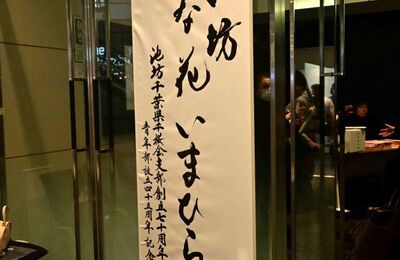 坊
な花いまひら
池坊千葉県千桜会支部創立七十周年
青年部設立四十五周年記念